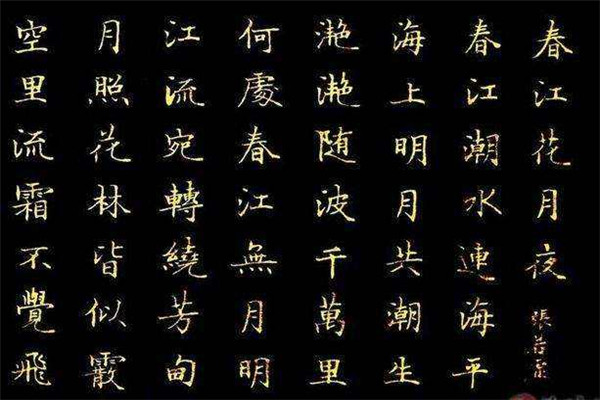 春江花月夜
張若虛
春江潮水連海平
海上明月共潮生
滟滟随波千萬里
何處春江無月明
江流宛轉繞芳甸
月照花林皆似霰
空里流霜不覺飛